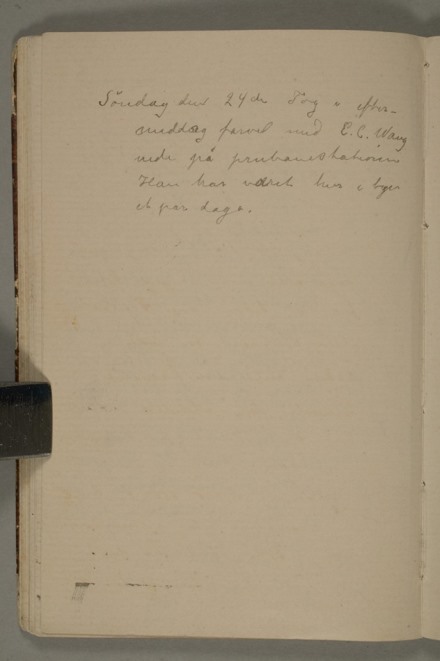 Søndag den 24de Tog i efter-
middag farvel med E. C. Wang
nede på jernbanestationen
Han har været her i byen
et par dage.